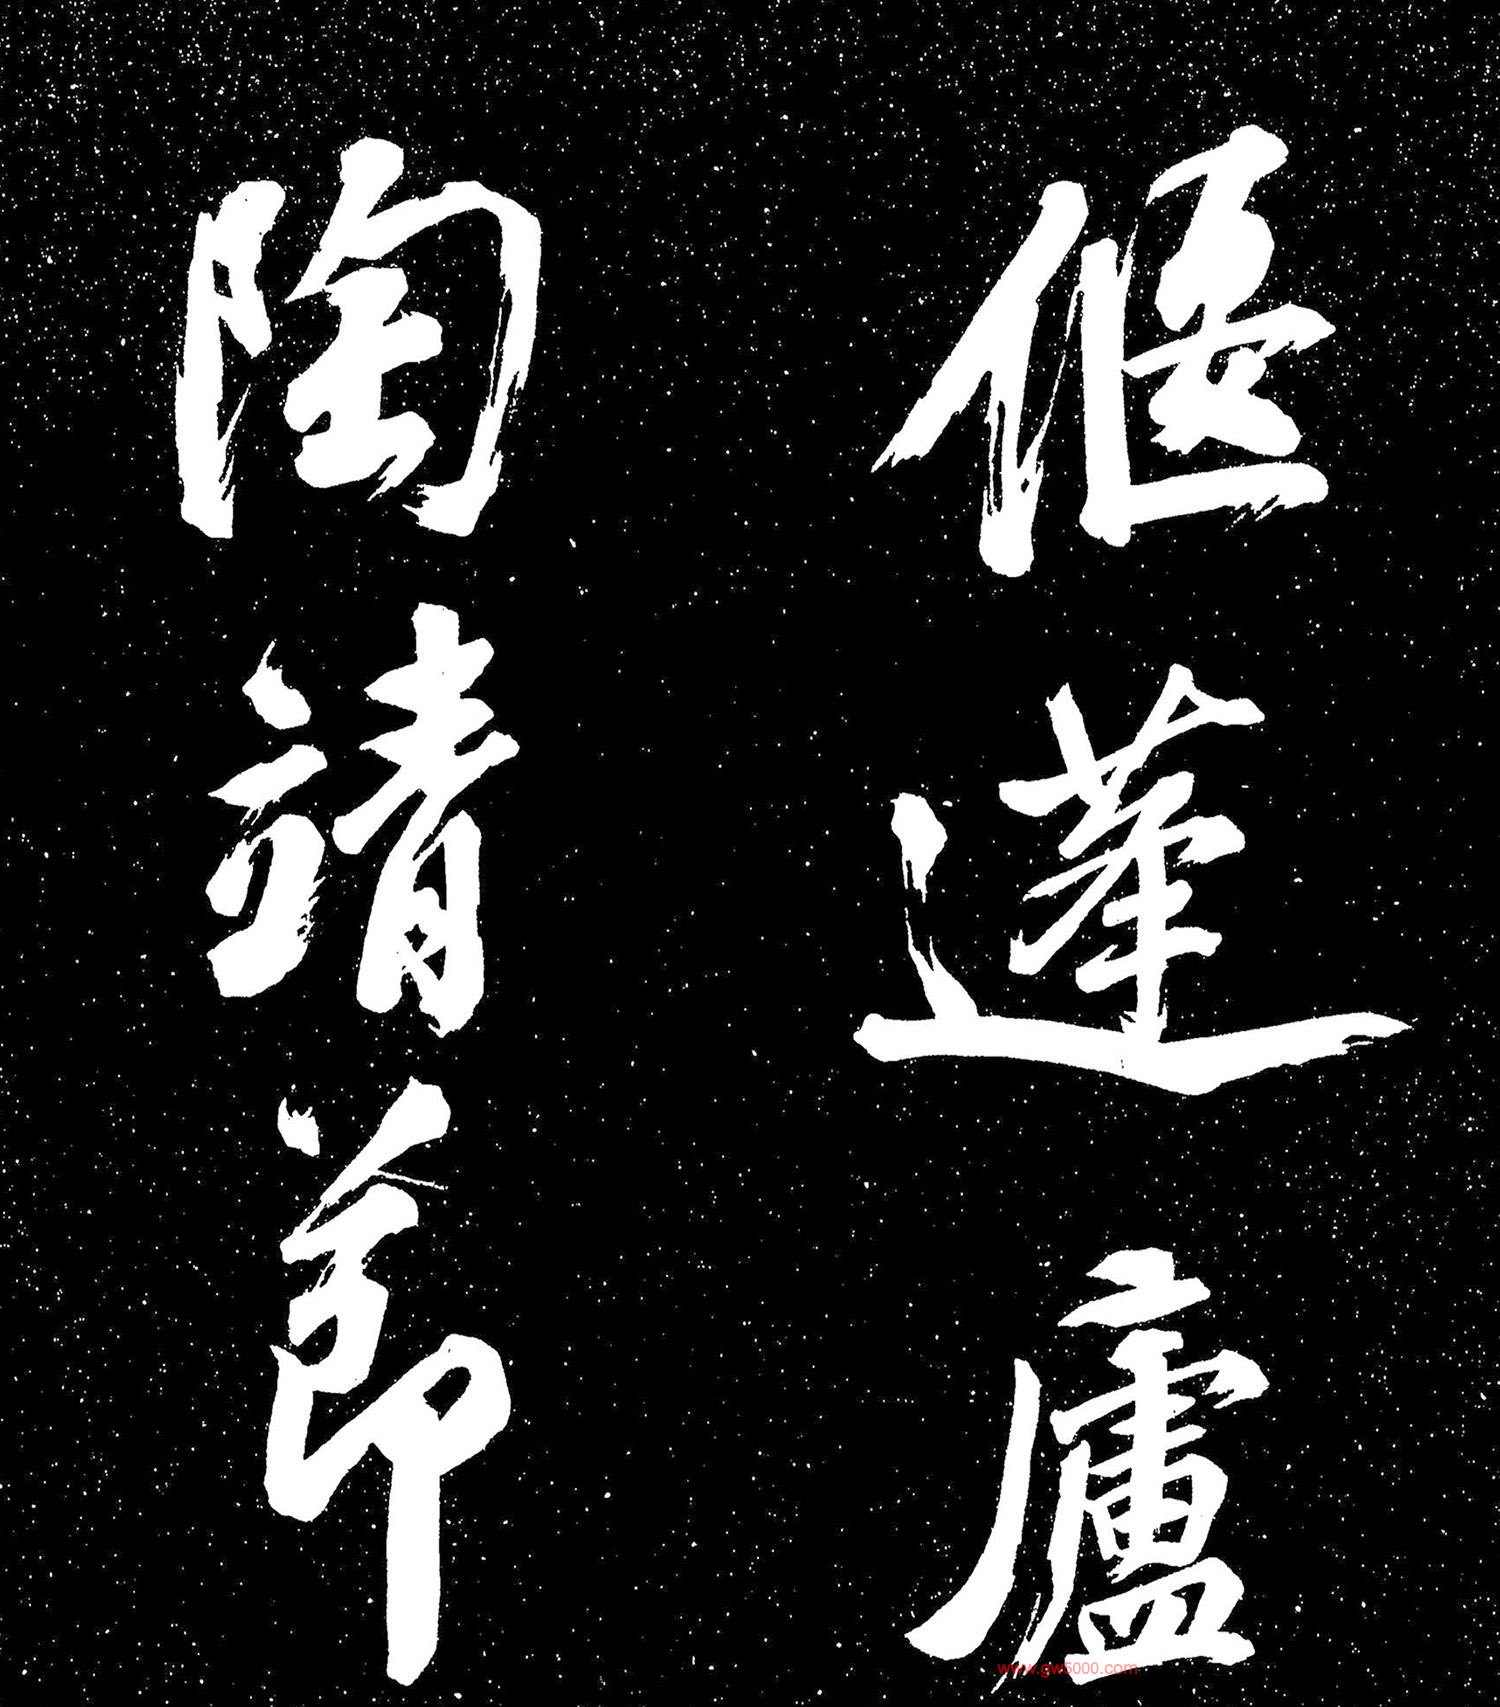 偃蓬廬
陶靖節
www.gw5000.com